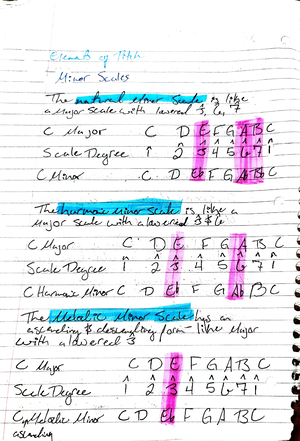 Elements of Pitch
Minor Scales
The natural minor scale is like
a Major Scale with lowered 3̂, 6̂, 7̂
C Major C D E F G A B C
Scale Degree 1̂ 2̂ 3̂ 4̂ 5̂ 6̂ 7̂ 1̂
C Minor C D Eb F G Ab Bb C
The harmonic minor scale is like a
Major scale with a lowered 3̂ & 6̂
C Major C D E F G A B C
Scale Degree 1̂ 2̂ 3̂ 4̂ 5̂ 6̂ 7̂ 1̂
C Harmonic Minor C D Eb F G Ab B C
The Melodic Minor Scale has an
ascending & descending form - like Major
with a lowered 3̂
C Major C D E F G A B C
Scale Degree 1̂ 2̂ 3̂ 4̂ 5̂ 6̂ 7̂ 1̂
C Melodic Minor C D Eb F G A B C
ascending